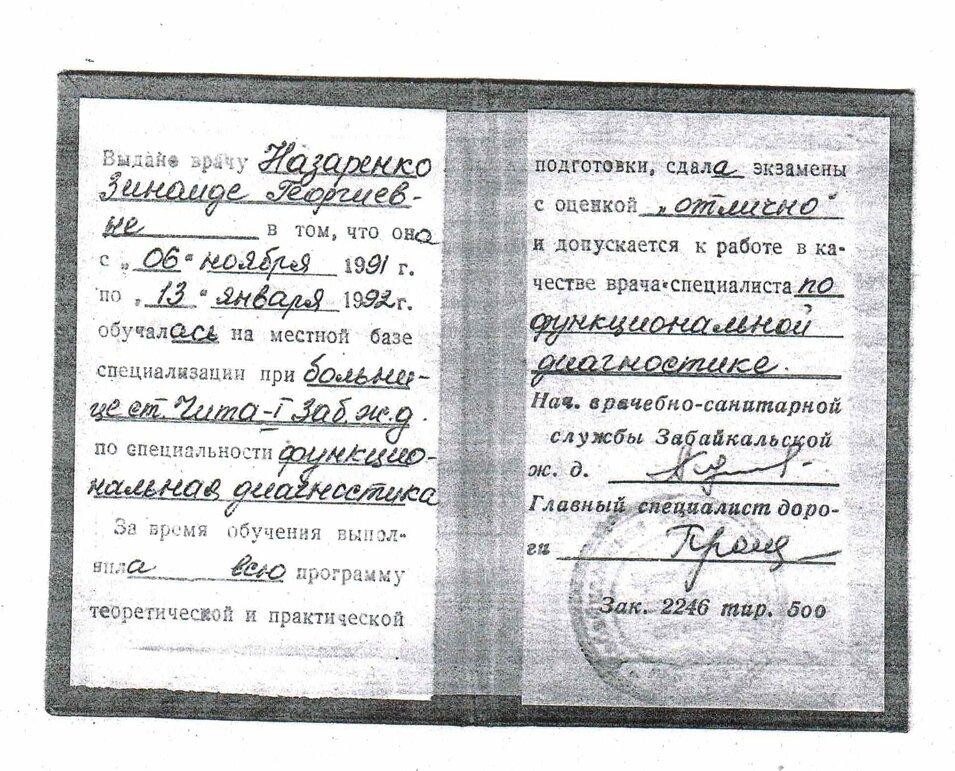 Выдано врачу Назаренко
Зинаиде Георгиев-
не в том, что она
с „06" ноября 1991 г.
по „13" января 1992 г.
обучалась на местной базе
специализации при больни-
це ст. Чита-I Заб. ж.д.
по специальности функцио-
нальная диагностика
За время обучения выпол-
нила всю программу
теоретической и практической
подготовки, сдала экзамены
с оценкой „отлично"
и допускается к работе в ка-
честве врача-специалиста по
функциональной
диагностике.
Нач. врачебно-санитарной
службы Забайкальской
ж. д.
Главный специалист доро-
ги
Зак. 2246 тир. 500